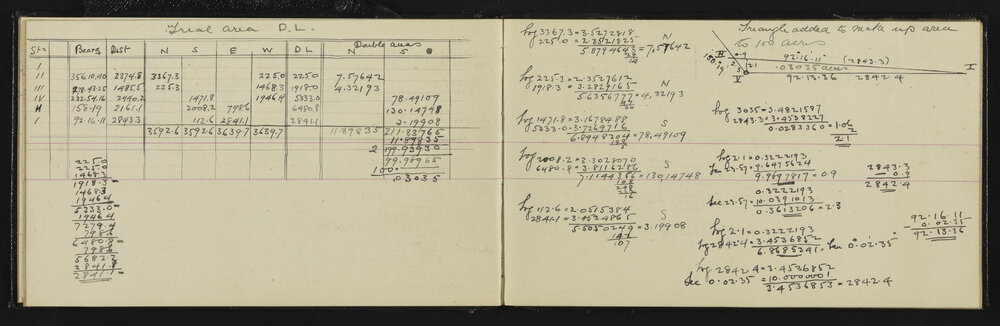 Trial area D.L.
Stn Bearg Dist N S E W DL Double areas N S
I
II 356.10.40 3374.8 3367.3 225.0 225.0 7.57642
III 278.43.25 1485.5 225.3 1468.3 1918.0 4.32193
IV 232.54.16 2440.2 1471.8 1946.4 5333.0 78.49109
V 158.19 2161.1 2008.2 798.6 6480.8 130.14748
I 92.16.11 2843.3 112.6 2841.1 2841.1 3.19908
3592.6 3592.6 3639.7 3639.7 11.89835 211.83765
11.89835
2 199.93930
99.96965
100.
.03035
225.0
225.0
1468.3
1918.3
1468.3
1946.4
5333.0
1946.4
7279.4
798.6
6480.8
798.6
5682.2
2841.1
2841.1
log 3367.3 = 3.5272818 N
225.0 = 2.3521825
5.8794643 = 7.57642
log 225.3 = 2.3527612 N
1918.3 = 3.2829165
5.6356777 = 4.32193
log 1471.8 = 3.1678488 S
5333.0 = 3.7269716
6.8948204 = 78.49109
log 2008.2 = 3.3028070 S
6480.8 = 3.8116286
7.1144356 = 130.14748
log 112.6 = 2.0515384 S
2841.1 = 3.4534865
5.5050249 = 3.19908
Triangle added to make up area
to 100 acres
92.16.11" (2843.3)
.03035 acres
92.13.36 2842.4
log 3035 = 3.4821587
2843.3 = 3.4538227
0.0283360 = 1.06
2
2.1
log 2.1 = 0.3222193
tan 23.57 = 9.6475624
9.9697817 = 0.9
0.3222193
sec 23.57 = 10.0391013
0.3613206 = 2.3
2843.3
0.9
2842.4
log 2.1 = 0.3222193
log 2842.4 = 3.4536852
6.8685341 = tan 0.02.35
92.16.11
0.02.35
92.13.36
log 2842.4 = 3.4536852
sec 0.02.35 = 10.0000001
3.4536853 = 2842.4